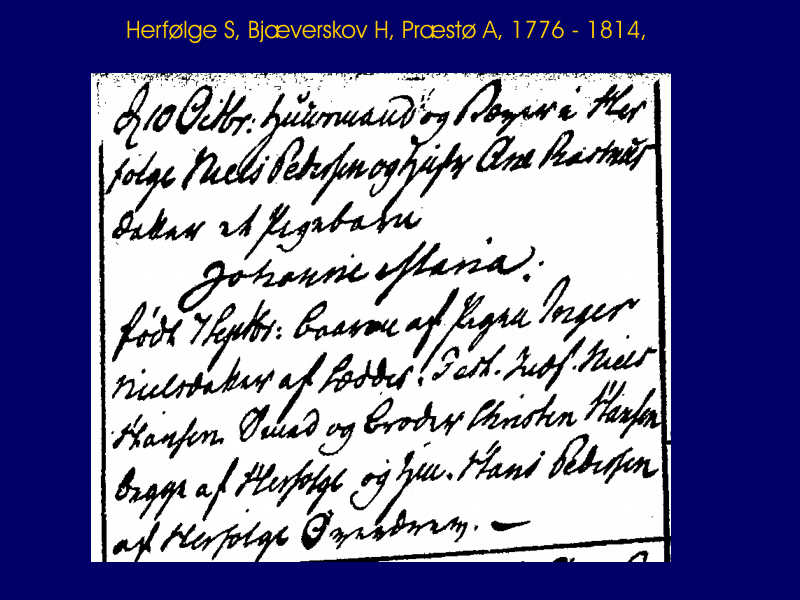 Herfølge S, Bjæverskov H, Præstø A, 1776 - 1814,
d 10 Octbr: Huusmand og Væver i Her
følge Niels Pedersen og Hustr Ane Rasmus
datter et Pigebarn
Johanne Maria.
født 7 Septbr: baaren af Pigen Inger
Nielsdatter af Test. Niels
Hansen Smed og broder Christen Hansen
begge af Herfølge og Huu. Hans Pedersen
af Herfølge